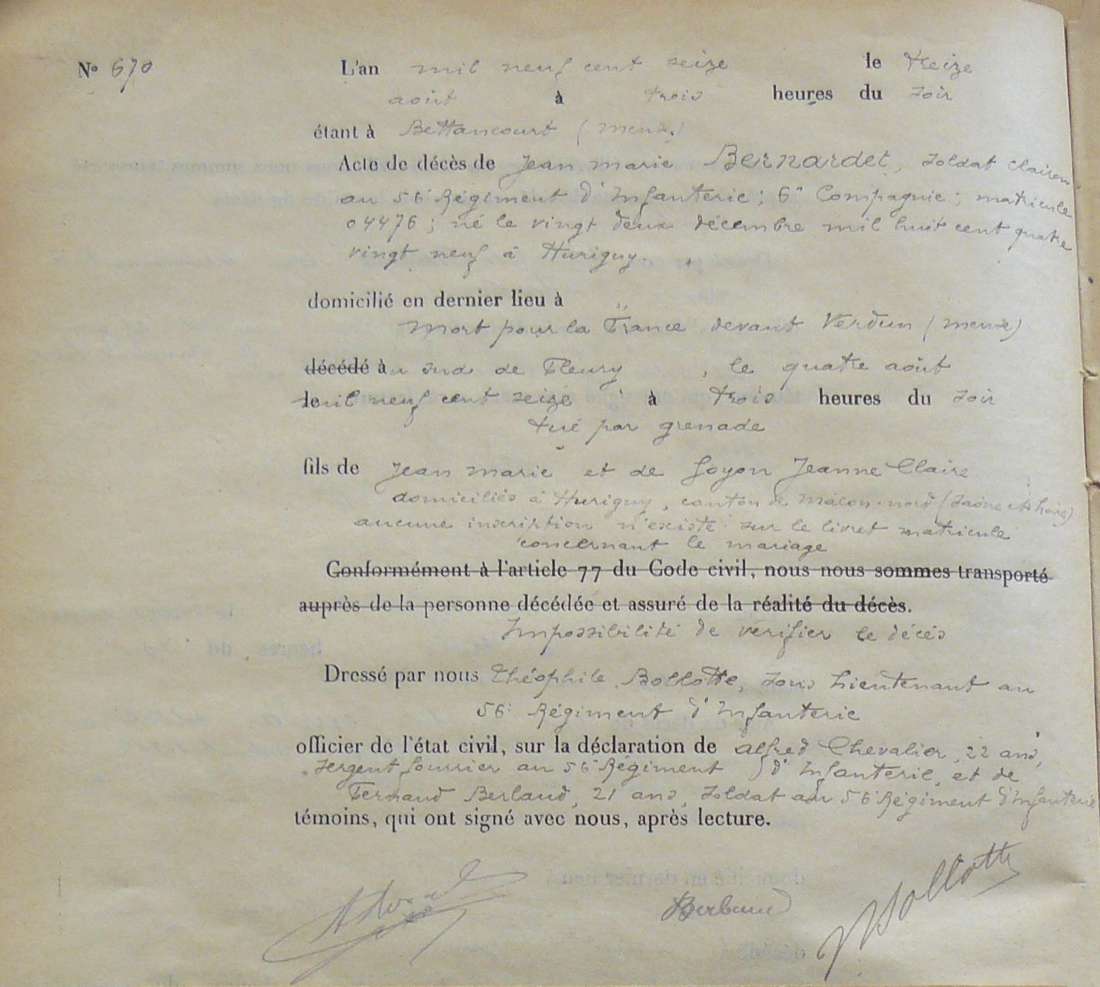 N° 670
L'an mil neuf cent seize le treize
août à trois heures du soir
étant à Bettancourt (meuse)
Acte de décès de Jean marie Bernardet, soldat clairon
au 56e Régiment d'Infanterie; 6e Compagnie; matricule
04476; né le vingt deux décembre mil huit cent quatre
vingt neuf à Hurigny.
domicilié en dernier lieu à "
mort pour la France devant Verdun (meuse)
décédé à au sud de Fleury, le quatre août
le mil neuf cent seize à trois heures du soir
tué par grenade
fils de Jean marie et de Goyon Jeanne Claire
domiciliés à Hurigny, canton de mâcon-nord (Saône et Loire)
aucune inscription n'existe sur le livret matricule
concernant le mariage
Conformément à l'article 77 du Code civil, nous nous sommes transporté
auprès de la personne décédée et assuré de la réalité du décès.
Impossibilité de vérifier le décès
Dressé par nous Théophile Bollotte, sous Lieutenant au
56e Régiment d'Infanterie
officier de l'état civil, sur la déclaration de alfred Chevalier, 22 ans,
sergent fourrier au 56e Régiment d'Infanterie, et de
Fernand Berland, 21 ans, soldat au 56e Régiment d'Infanterie
témoins, qui ont signé avec nous, après lecture.
Berland Bollotte